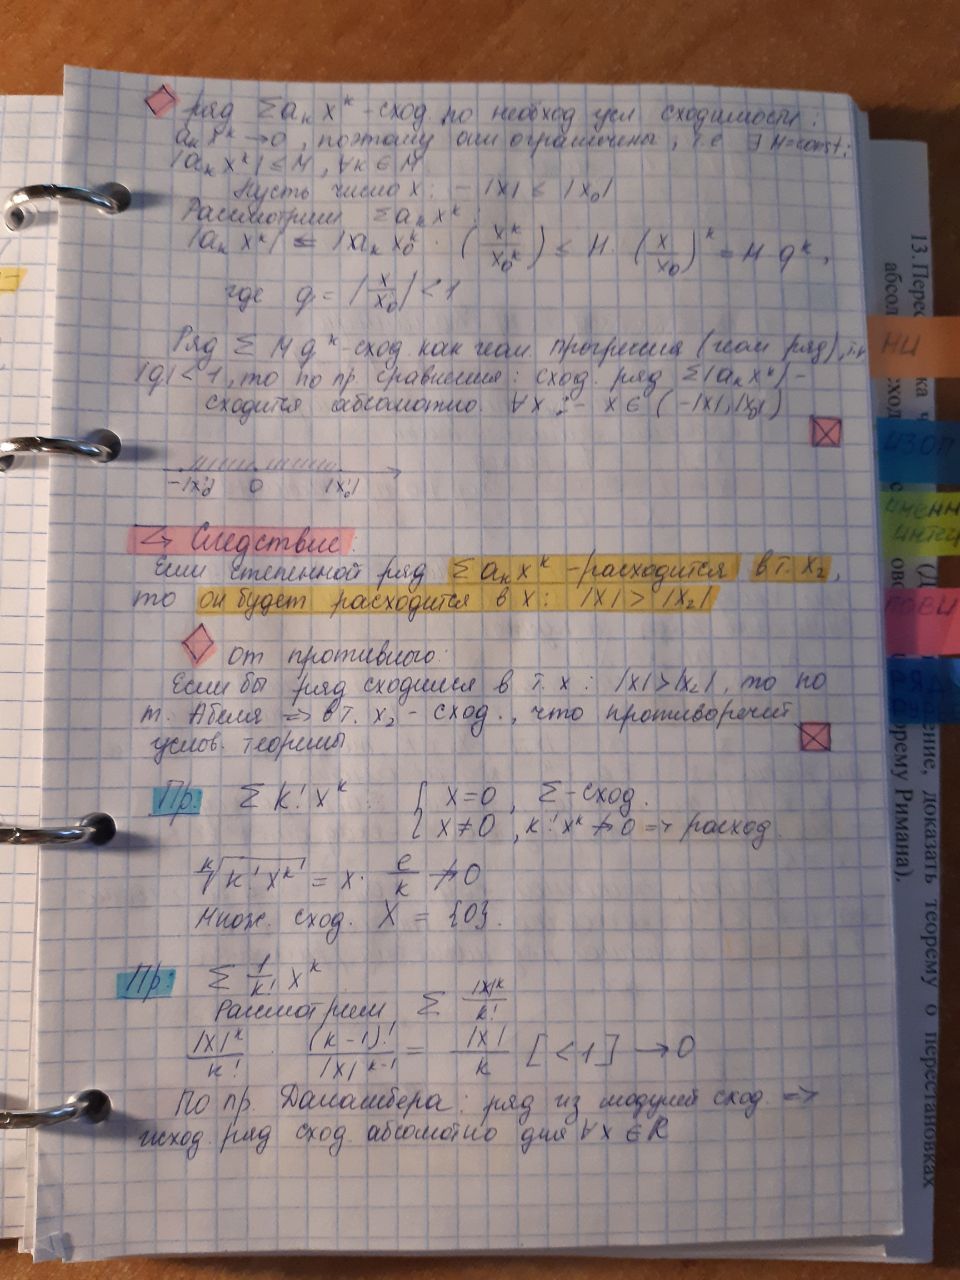 ряд Σ aₖ xᵏ - сход. по необход усл. сходимости:
aₖ xᵏ → 0, поэтому они ограничены, т.е ∃ M=const:
|aₖ xᵏ| ≤ M, ∀k ∈ M
Пусть число x: - |x| ≤ |x₀|
Рассмотрим Σ aₖ xᵏ:
|aₖ xᵏ| ≤ |aₖ x₀ᵏ · (xᵏ/x₀ᵏ) ≤ M · (x/x₀)ᵏ = M qᵏ,
где q = |x/x₀| < 1
Ряд Σ M qᵏ - сход. как геом. прогрессия (геом ряд), т.к
|q| < 1, то по пр. сравнения: сход. ряд Σ|aₖ xᵏ| -
сходится абсолютно. ∀x :- x ∈ (-|x|, |x₀|)
-|x₀| 0 |x₀|
↳ Следствие:
Если степенной ряд Σ aₖ xᵏ - расходится в т. x₂,
то он будет расходится в x: |x| > |x₂|
от противного:
Если бы ряд сходился в т. x: |x| > |x₂|, то по
т. Абеля ⇒ в т. x₂ - сход., что противоречит
услов. теоремы
Пр: Σ k! xᵏ : { x=0, Σ - сход.
{ x ≠ 0, k! xᵏ ↛ 0 ⇒ расход.
ᵏ√(k! xᵏ) = x · e/k ↛ 0
Множ. сход. X = {0}.
Пр: Σ 1/k! xᵏ
Рассмотрим Σ |x|ᵏ/k!
|x|ᵏ/k! · (k-1)!/|x|ᵏ⁻¹ = |x|/k [<1] → 0
По пр. Даламбера: ряд из модулей сход. ⇒
исход. ряд сход. абсолютно для ∀x ∈ R
НИ
ИЗОП
РЯД
13. Перес
абсол
ение, доказать теорему о перестановках
орему Римана).